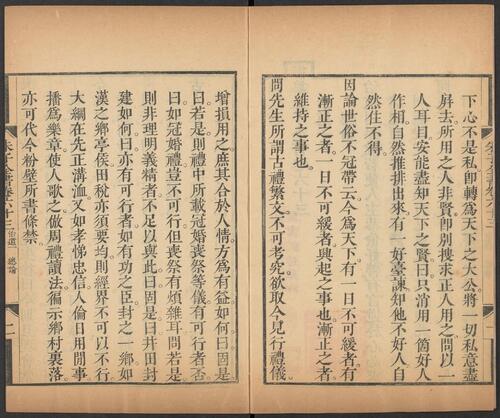 下心不是私即轉爲天下之大公將一切私意盡
屛去所用之人非賢卽別搜求正人用之問以一
人耳目安能盡知天下之賢曰只消用一箇好人
作相自然推排出來有一好臺諫知他不好人自
然住不得
因論世俗不冠帶云今爲天下有一日不可緩者有
漸正之者一日不可緩者興起之事也漸正之者
維持之事也
問先生所謂古禮繁文不可考究欲取今見行禮儀
增損用之庶其合於人情方爲有益如何曰固是
曰若是則禮中所載冠婚喪祭等儀有可行者否
曰如冠婚禮豈不可行但喪祭有煩雜耳問若是
則非理明義精者不足以與此曰固是曰井田封
建如何曰亦有可行者如有功之臣封之一鄉如
漢之鄉亭侯田稅亦須要均則經界不可以不行
大綱在先正溝洫又如孝悌忠信人倫日用間事
播爲樂章使人歌之倣周禮讀法徧示鄉村裏落
亦可代今粉壁所書條禁
朱子全書卷六十三 治道一 總論